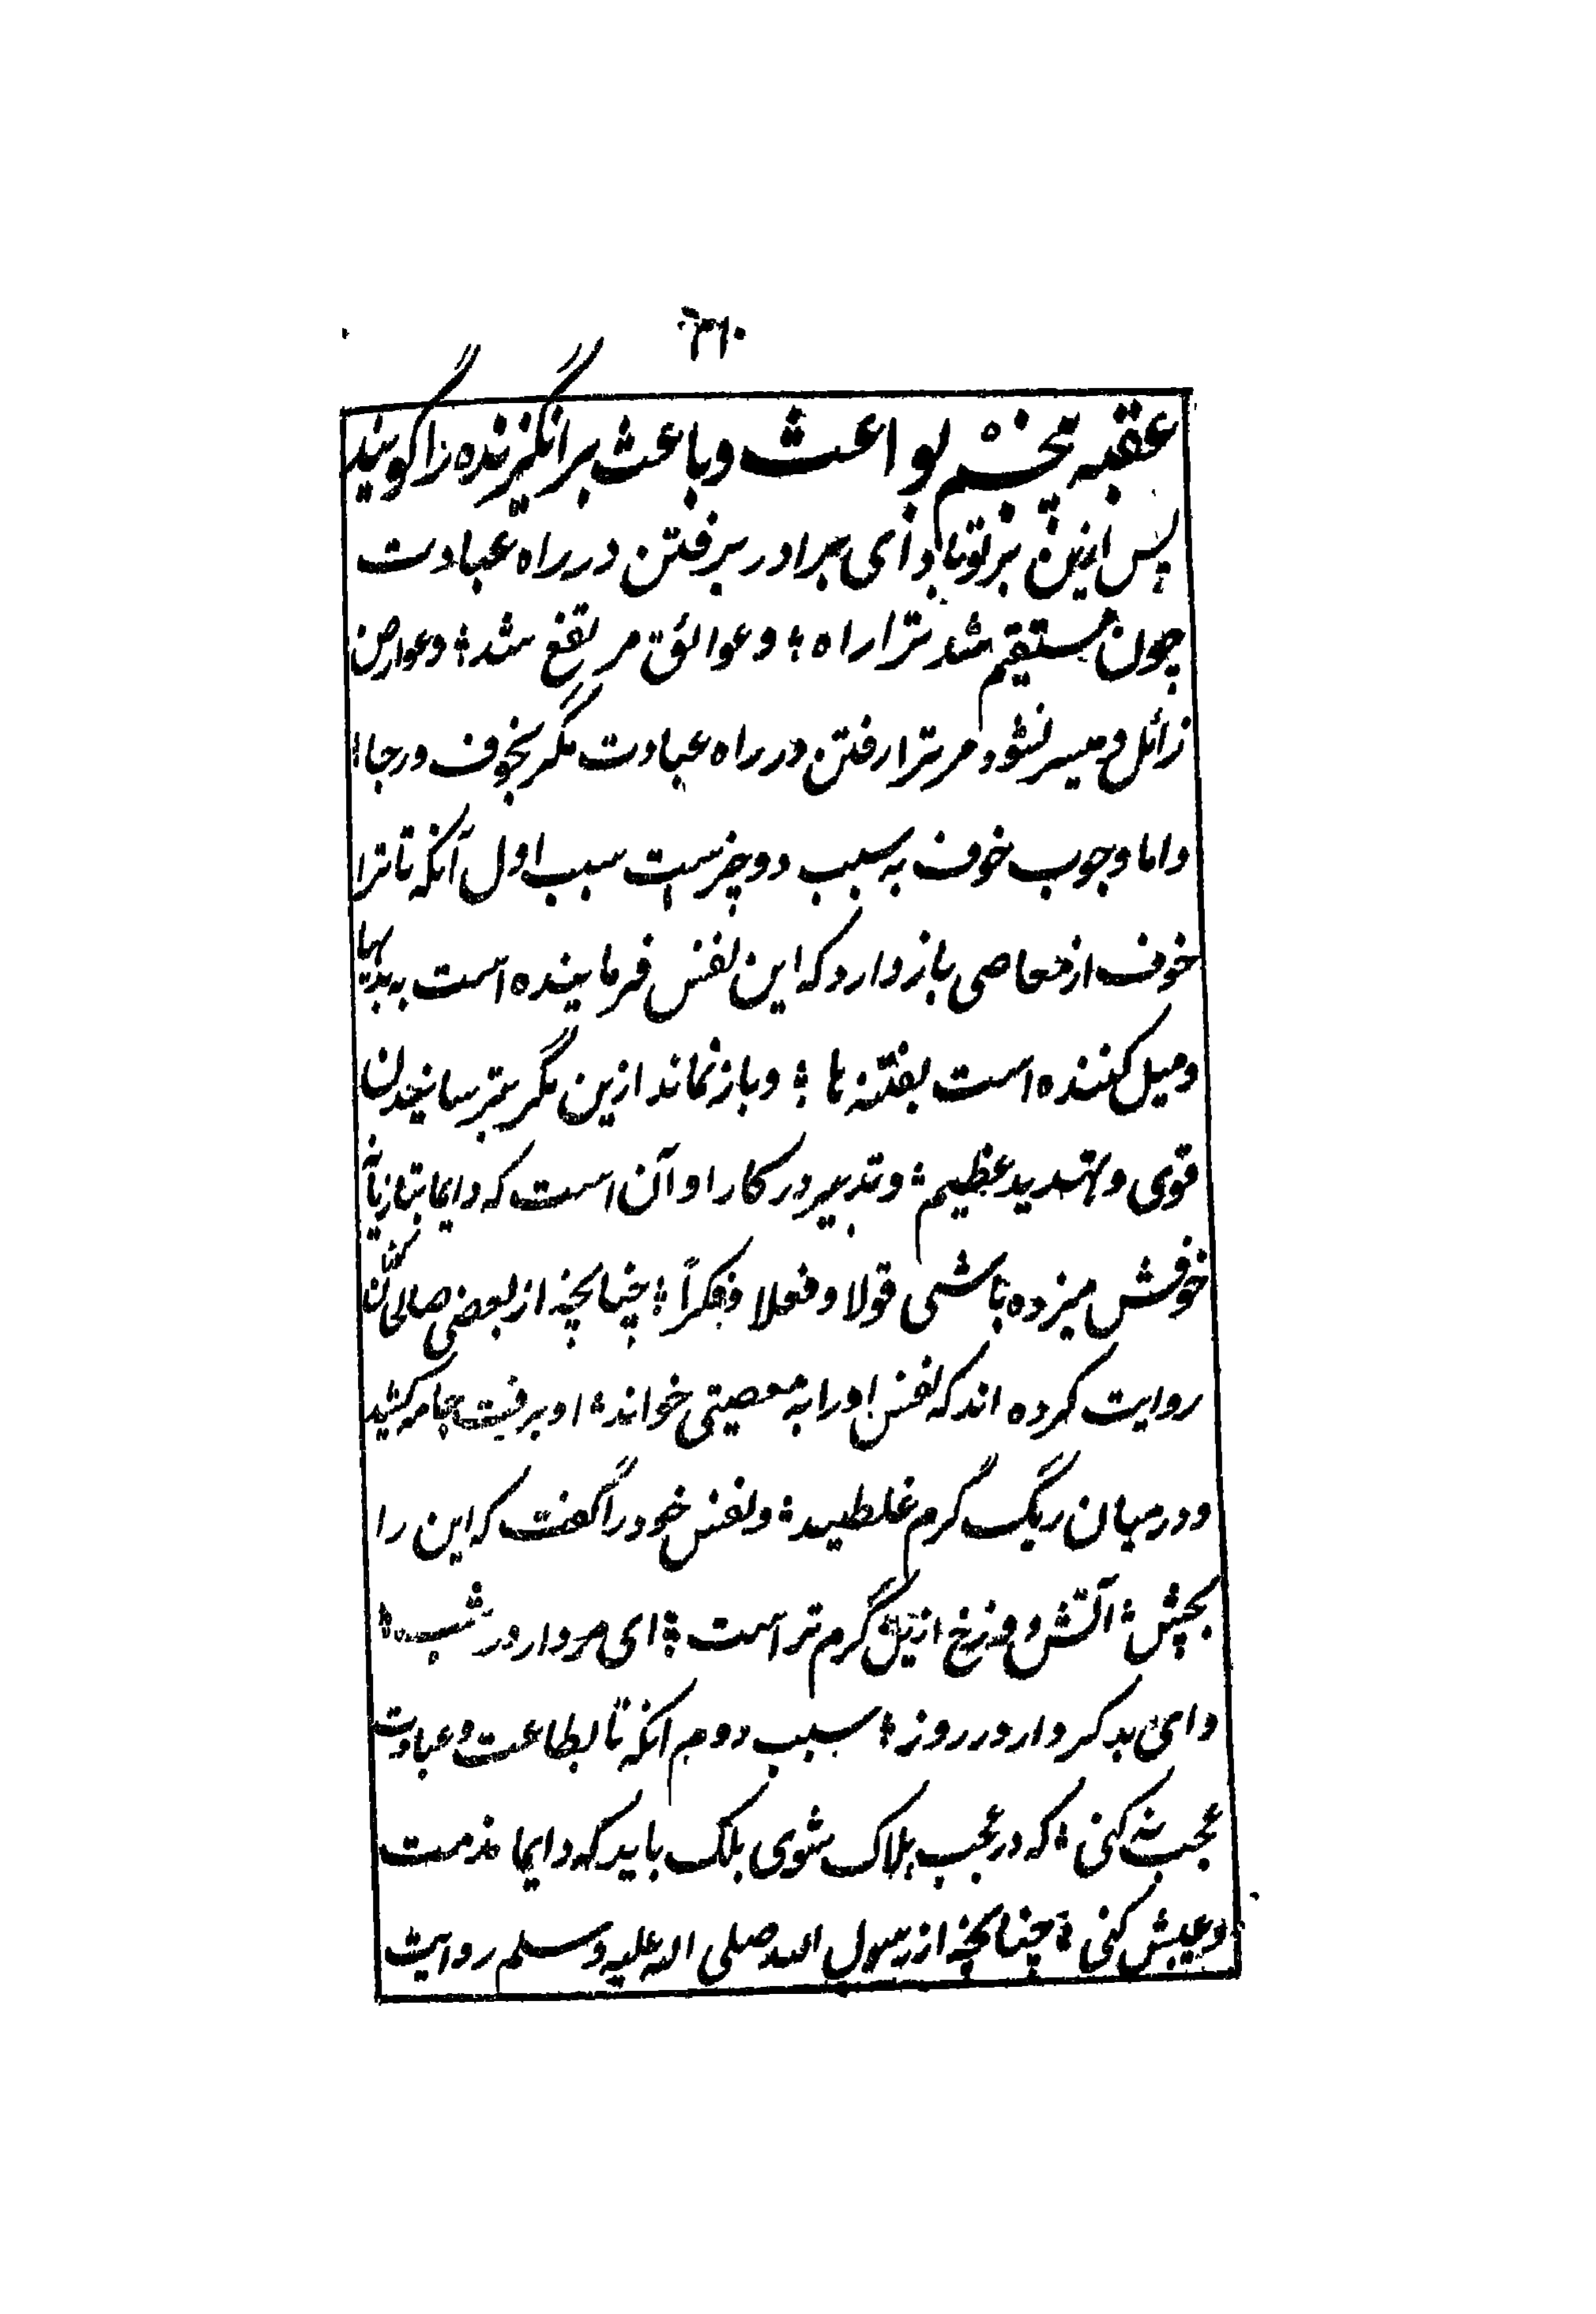 ۳۱۰
عقبه پنجم بواعث و باعث برانگیزنده را گویند
پس ازین بر تو باد ای برادر برفتن در راه عبادت
چون مستقیم شد ترا راه ؛ و عوائق مرتفع شد ؛ و عوارض
زائل و میسر نشود مر ترا رفتن در راه عبادت مگر بخوف و رجا ؛
و اما وجوب خوف به سبب دو چیز ست سبب اول آنکه تا ترا
خوف از معاصی باز دارد که این نفس فرماینده است به بدیها
و میل کننده است بفتنه ها ؛ و باز نماند ازین مگر بترسانیدن
قوی و تهدید عظیم ؛ و تدبیر در کار او آن است که دایما بتازیانه
خوفش میزده باشی قولا و فعلا و فکراً ؛ چنانچه از بعضی صالحان
روایت کرده اند که نفس او را به معصیتی خواند ؛ او برفت جامه کشید
و در میان ریگ گرم غلطید ؛ و نفس خود را گفت که این را
بچش ؛ آتش دوزخ ازین گرم تر است ؛ ای مردار در شب ؛
و ای بد کردار در روز ؛ سبب دوم آنکه تا بطاعت و عبادت
عجب نه کنی ؛ که در عجب هلاک شوی بلک باید که دایما مذمت
و عیبش کنی ؛ چنانچه از رسول الله صلی الله علیه و سلم روایت